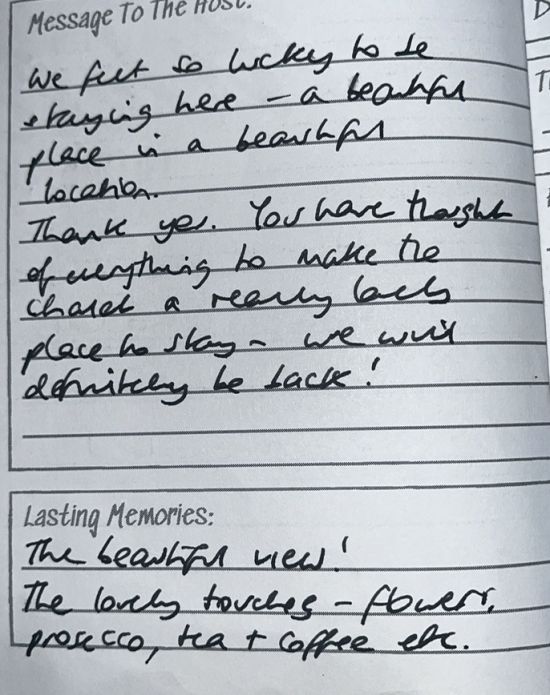 Message To The Host:
We feel so lucky to be
staying here - a beautiful
place in a beautiful
location.
Thank you. You have thought
of everything to make the
chalet a really lovely
place to stay - we will
definitely be back!
Lasting Memories:
The beautiful view!
The lovely touches - flowers,
prosecco, tea + coffee etc.